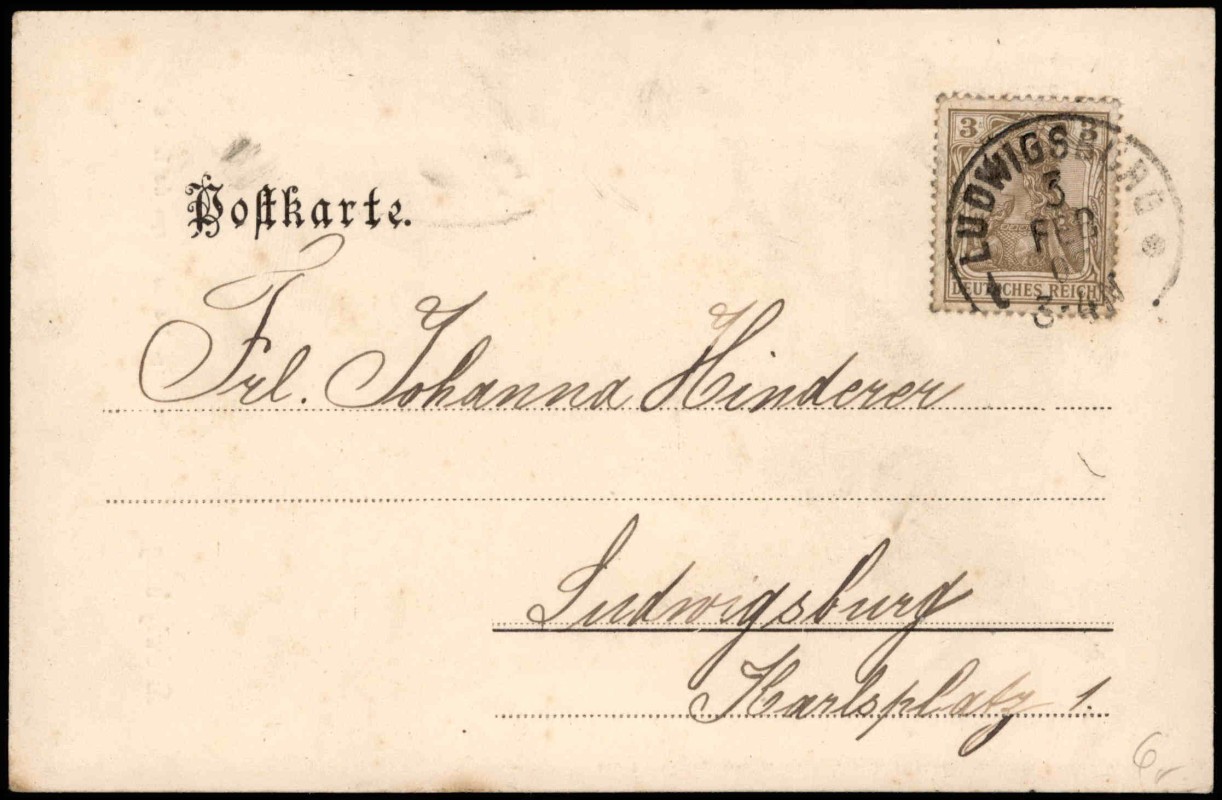 Postkarte.
3 3
DEUTSCHES REICH
LUDWIGSBURG
3
FEB
3-4N
Frl. Johanna Hinderer
Ludwigsburg
Karlsplatz 1.
6,-